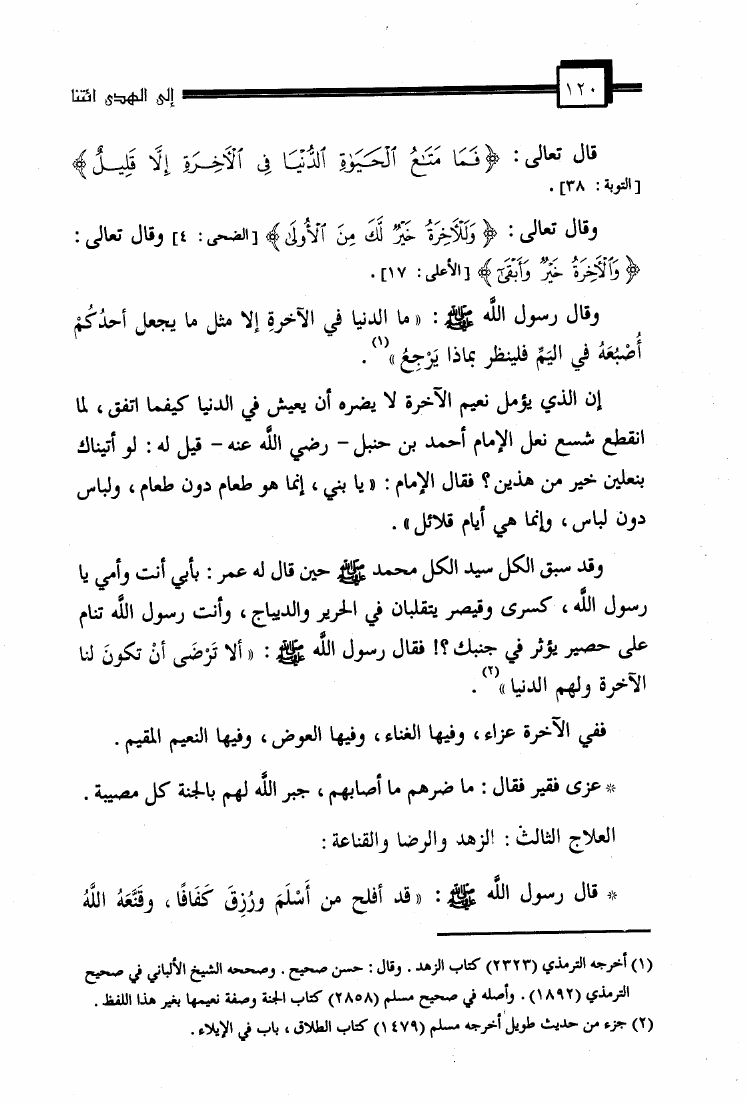 ١٢٠
إلى الهدى ائتنا
قال تعالى : ﴿ فَمَا مَتَٰعُ ٱلْحَيَوٰةِ ٱلدُّنْيَا فِى ٱلْأَخِرَةِ إِلَّا قَلِيلٌ ﴾
[التوبة : ٣٨] .
وقال تعالى : ﴿ وَلَلْأَخِرَةُ خَيْرٌ لَّكَ مِنَ ٱلْأُولَىٰ ﴾ [الضحى : ٤] وقال تعالى :
﴿ وَٱلْأَخِرَةُ خَيْرٌ وَأَبْقَىٰٓ ﴾ [الأعلى : ١٧] .
وقال رسول اللَّه ﷺ : « ما الدنيا في الآخرةِ إلا مثل ما يجعل أحدُكُمْ
أُصْبُعَهُ في اليَمِّ فلينظر بماذا يَرْجِعُ »(١) .
إن الذي يؤمل نعيم الآخرة لا يضره أن يعيش في الدنيا كيفما اتفق ، لما
انقطع شسع نعل الإمام أحمد بن حنبل – رضي اللَّه عنه – قيل له : لو أتيناك
بنعلين خير من هذين ؟ فقال الإمام : « يا بني ، إنما هو طعام دون طعام ، ولباس
دون لباس ، وإنما هي أيام قلائل » .
وقد سبق الكل سيد الكل محمد ﷺ حين قال له عمر : بأبي أنت وأمي يا
رسول اللَّه ، كسرى وقيصر يتقلبان في الحرير والديباج ، وأنت رسول اللَّه تنام
على حصير يؤثر في جنبك ؟! فقال رسول اللَّه ﷺ : « ألا تَرْضَى أنْ تكونَ لنا
الآخرة ولهم الدنيا »(٢) .
ففي الآخرة عزاء ، وفيها الغناء ، وفيها العوض ، وفيها النعيم المقيم .
* عزى فقير فقال : ما ضرهم ما أصابهم ، جبر اللَّه لهم بالجنة كل مصيبة .
العلاج الثالث : الزهد والرضا والقناعة :
* قال رسول اللَّه ﷺ : « قد أفلح من أَسْلَمَ ورُزِقَ كَفَافًا ، وقَنَّعَهُ اللَّهُ
(١) أخرجه الترمذي (٢٣٢٣) كتاب الزهد . وقال : حسن صحيح . وصححه الشيخ الألباني في صحيح
الترمذي (١٨٩٢) . وأصله في صحيح مسلم (٢٨٥٨) كتاب الجنة وصفة نعيمها بغير هذا اللفظ .
(٢) جزء من حديث طويل أخرجه مسلم (١٤٧٩) كتاب الطلاق ، باب في الإيلاء .